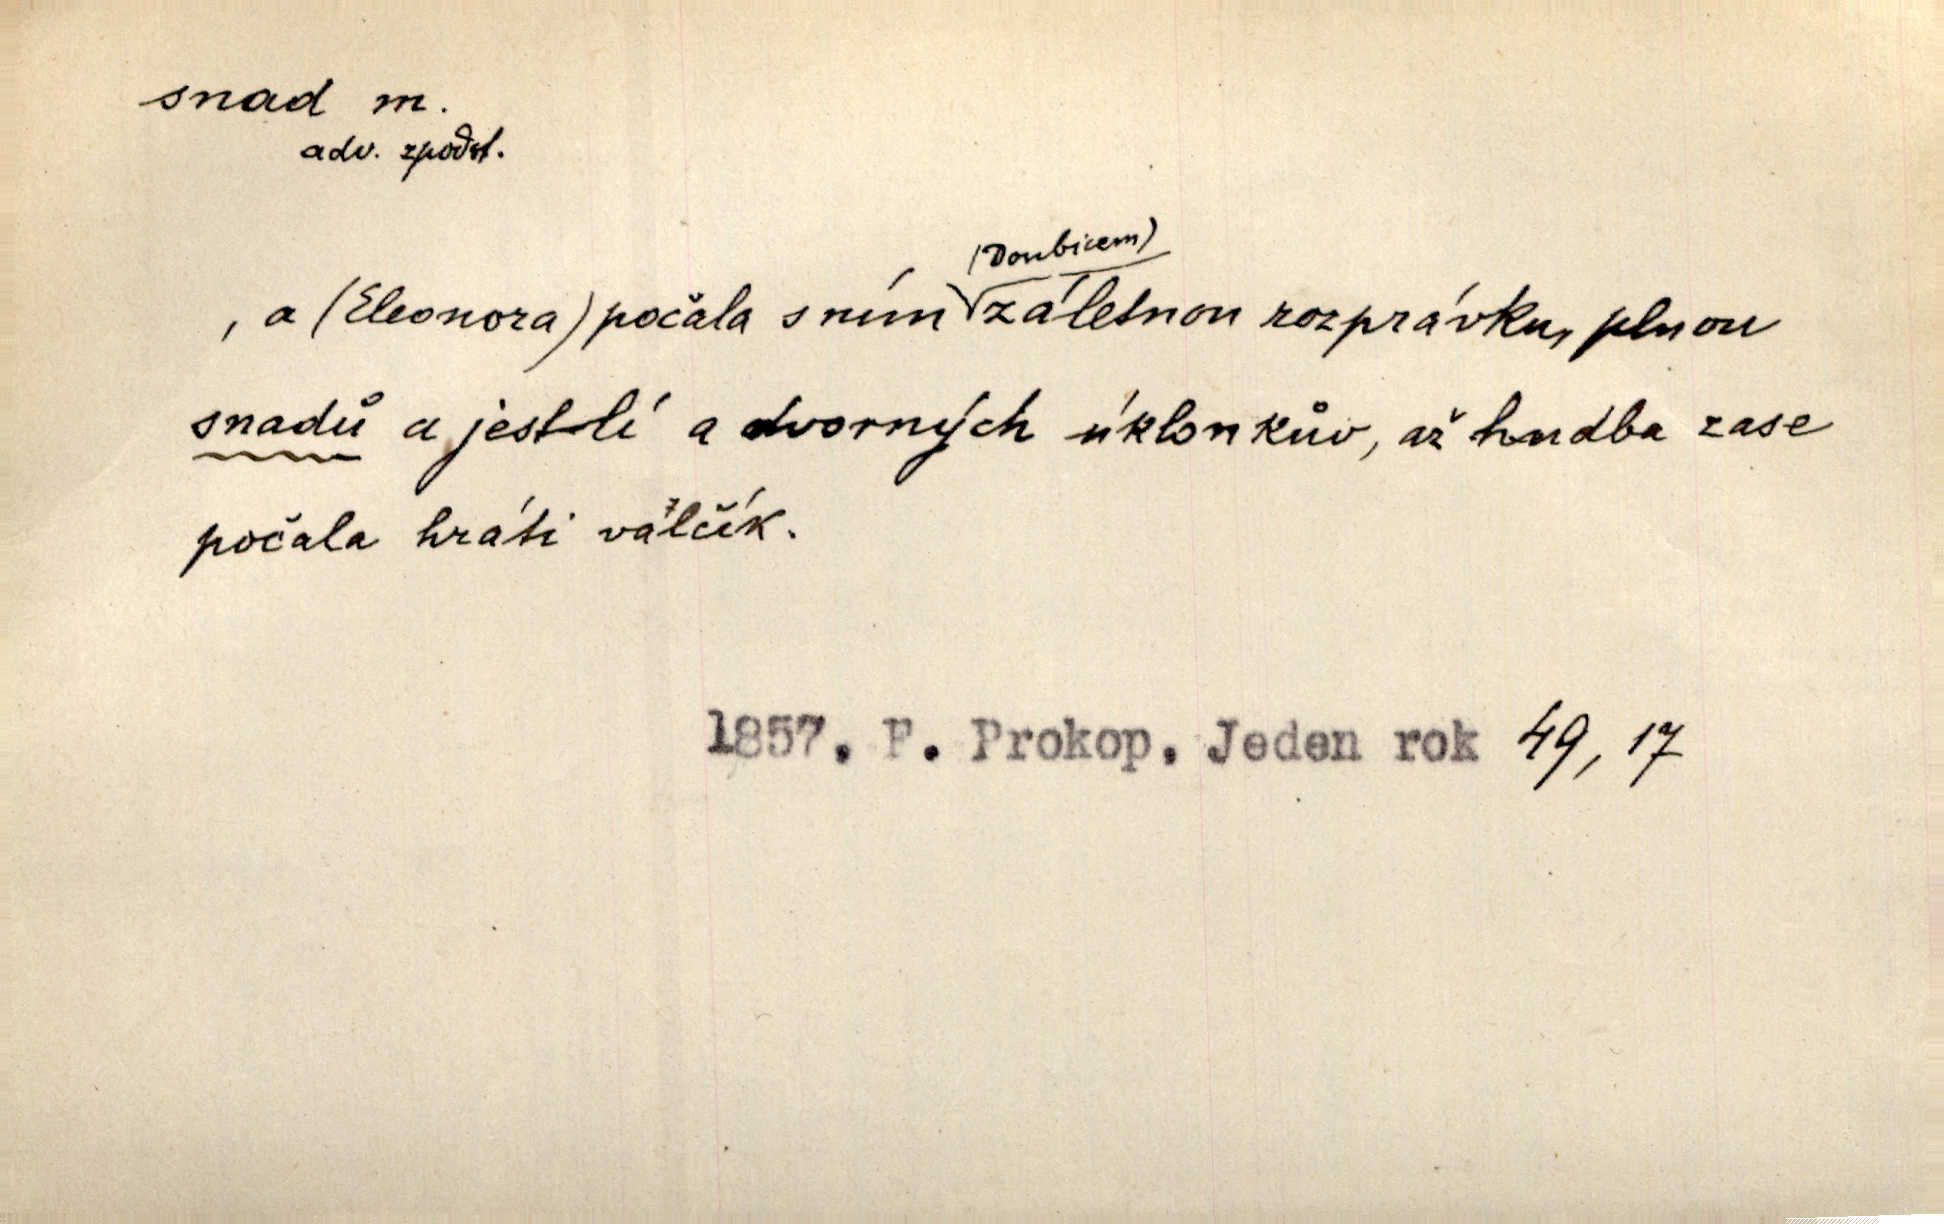 snad m.
adv. zpodst.
(Doubicem)
, a (Eleonora) počala s ním záletnou rozprávku, plnou
snadů a jestlí a dvorných úklonkův, až hudba zase
počala hráti valčík.
1857. F. Prokop. Jeden rok 49, 17